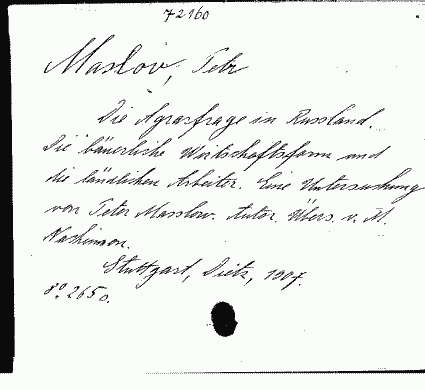 72160
Maslov, Petr
Die Agrarfrage in Russland.
Die bäuerliche Wirtschaftsform und
die ländlichen Arbeiter. Eine Untersuchung
von Peter Masslow. Autor. Übers. v. M.
Nachimson.
Stuttgart, Dietz, 1907.
8° 265 S.